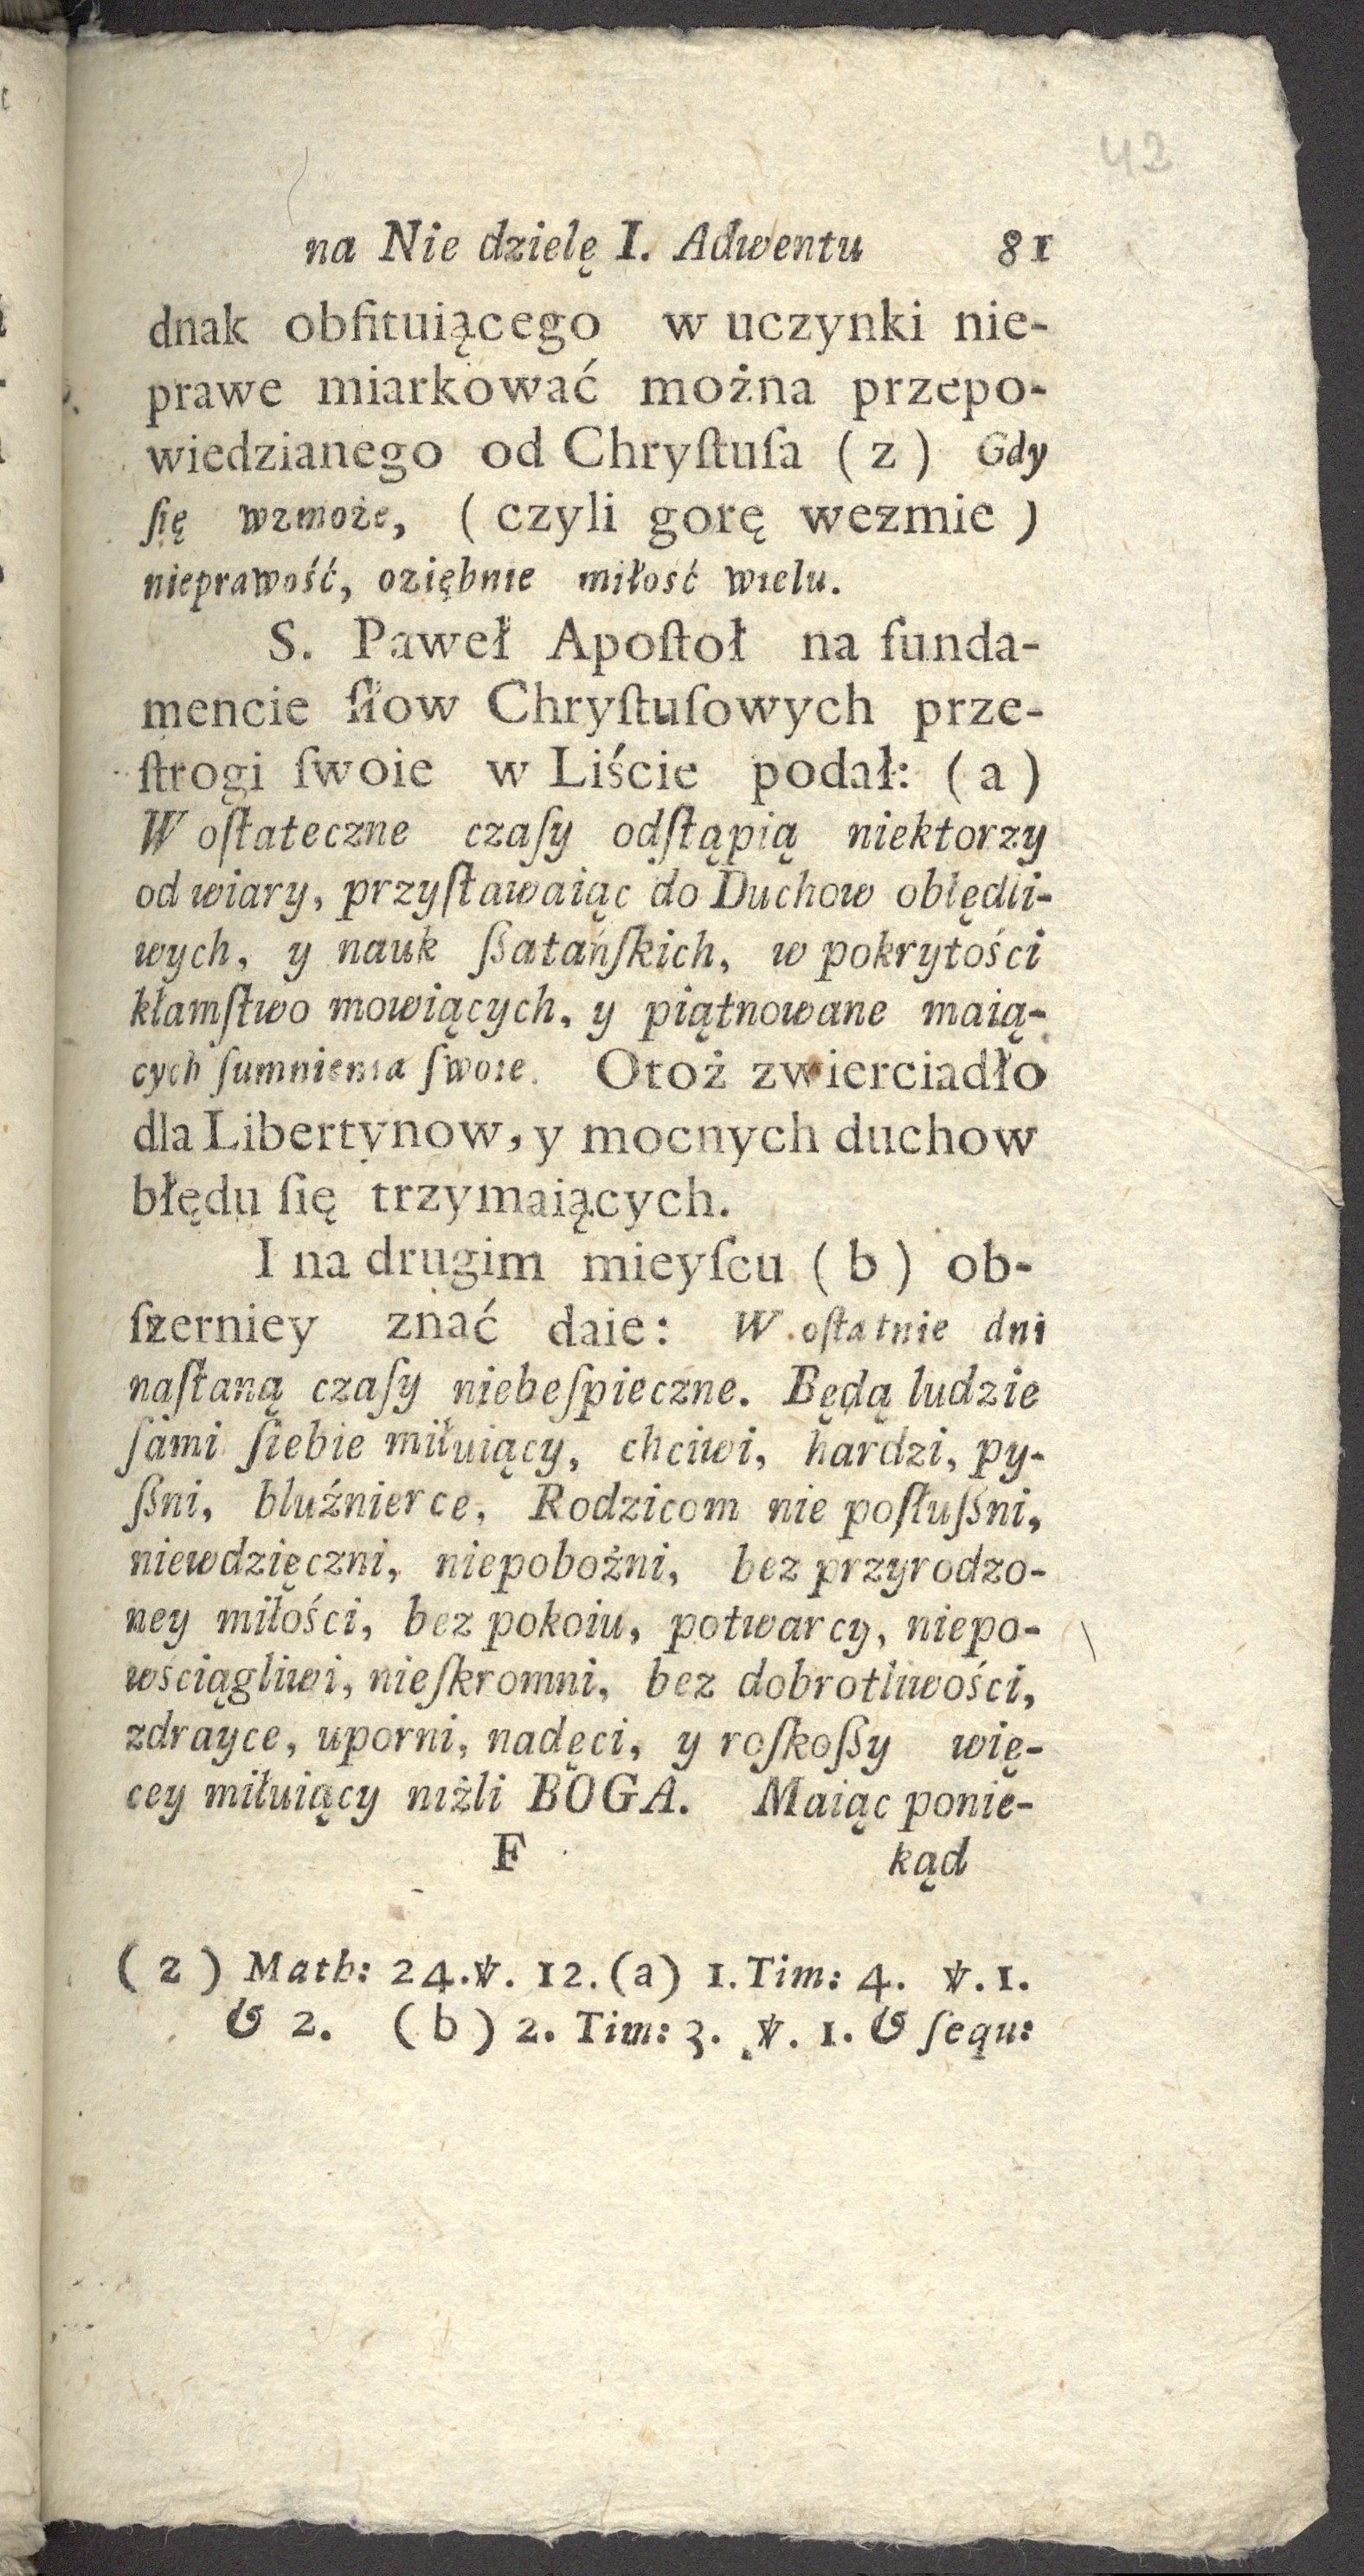 42
na Nie dzielę I. Adwentu 81
dnak obfituiącego w uczynki nie-
prawe miarkować można przepo-
wiedzianego od Chryſtuſa ( z ) Gdy
ſię wzmoże, ( czyli gorę wezmie )
nieprawość, oziębnie miłosć wielu.
S. Paweł Apoſtoł na funda-
mencie ſłow Chryſtuſowych prze-
ſtrogi ſwoie w Liście podał: ( a )
W oſtateczne czaſy odſtąpią niektorzy
od wiary, przyſtawaiąc do Duchow obłędli-
wych, y nauk ſßatańſkich, w pokrytości
kłamſtwo mowiących, y piątnowane maią-
cych ſumnienia ſwoie. Otoż zwierciadło
dla Libertynow, y mocnych duchow
błędu ſię trzymaiących.
I na drugim mieyſcu ( b ) ob-
ſzerniey znać daie: W oſtatnie dni
naſtaną czaſy niebeſpieczne. Będą ludzie
ſami ſiebie miłuiący, chciwi, hardzi, py-
ßni, bluźnierce, Rodzicom nie poſłuſßni,
niewdzięczni, niepobożni, bez przyrodzo-
ney miłości, bez pokoiu, potwarcy, niepo-
wściągliwi, nieſkromni, bez dobrotliwości,
zdrayce, uporni, nadęci, y roſkoßy wię-
cey miłuiący niżli BOGA. Maiąc ponie-
F kąd
( z ) Math: 24. ℣. 12. (a) 1. Tim: 4. ℣. 1.
& 2. ( b ) 2. Tim: 3. ℣. 1. & ſequ: